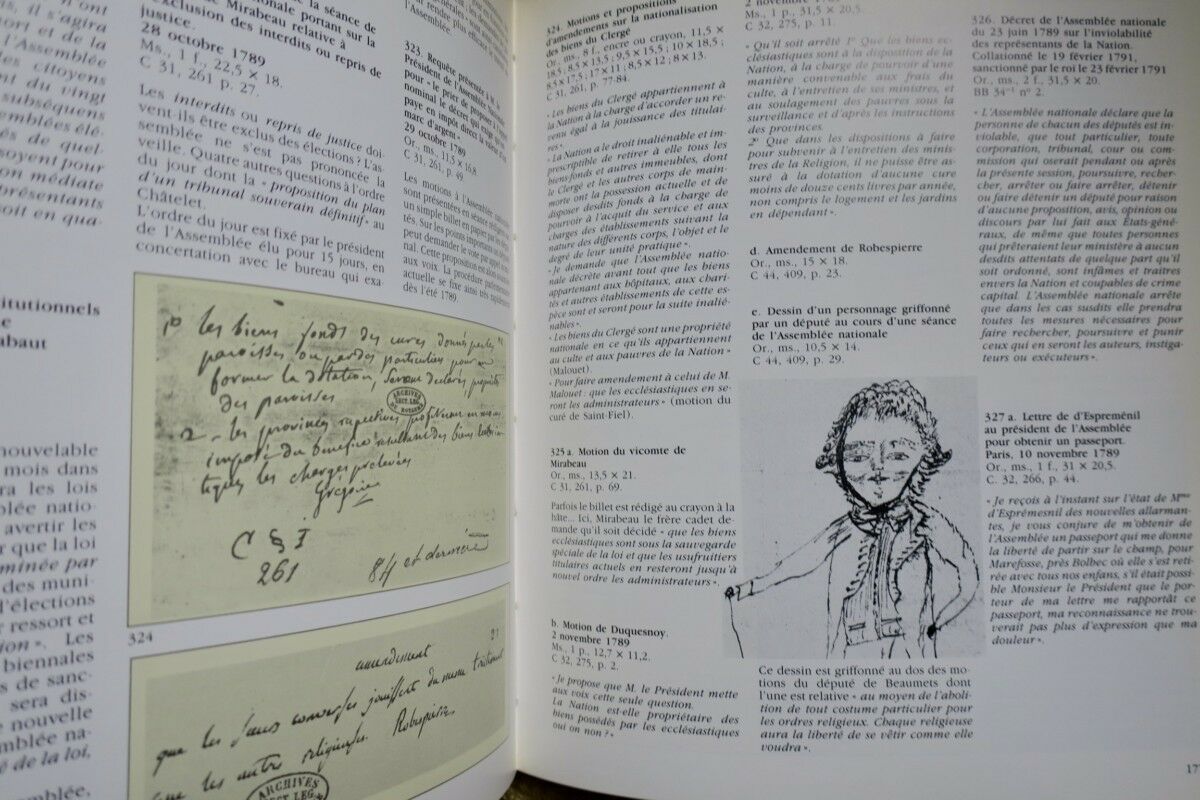 n'ont
il s'agira
ort et de la
l'Assemblée
s citoyens
nt du vingt
subséquens
emblées élé-
ès de quel-
soyent pour
on médiate
présentants
soit en qua-
titutionnels
e
abaut
nouvelable
mois dans
ra les lois
blée natio-
avertir les
r que la loi
minée par
des muni-
d'élections
r ressort et
ion ». Les
biennales
s de sanc-
sera dis-
e nouvelle
mblée na-
é de la loi,
emblée,
la séance de
nationale portant sur la
de Mirabeau relative à
exclusion des interdits ou repris de
justice.
28 octobre 1789
Ms., 1 f., 22,5 × 18.
C 31, 261 p. 27.
Les interdits ou repris de justice doi-
vent-ils être exclus des élections ? L'as-
semblée ne s'est pas prononcée la
veille. Quatre autres questions à l'ordre
du jour dont la « proposition du plan
d'un tribunal souverain définitif » au
Châtelet.
L'ordre du jour est fixé par le président
de l'Assemblée élu pour 15 jours, en
concertation avec le bureau qui exa-
rendre plus efficace
l'Assemblée.
323. Requête présentée à
Président de l'Assemblée
pour « le prier de proposer à l'appel
nominal le décret qui exige qu'on
paye un impôt direct de la valeur d'un
marc d'argent ».
29 octobre 1789
Or., ms., 11,5 × 16,8.
C 31, 261, p. 49.
Les motions à l'Assemblée nationale
sont présentées en séance
un simple billet en papier par les dépu-
tés. Sur les points importants un député
peut demander le vote par appel nomi-
nal. Cette proposition est alors
aux voix. La procédure parlementaire
actuelle se fixe ainsi très rapidement
dès l'été 1789.
1º les biens fonds des cures donnés par les
paroisses ou par des particuliers pour en
former la dotation, seront déclarés propriété
des paroisses
ARCHIVES
SECT. LEG.
DU ROYAUME
2 - les provinces respectives profiteront en moins
imposé du bénéfice resultant des biens
les charges prelevées
Grégoire
C § I
261
84 et dernière
324
21
amendement
que les Sœurs converses jouissent du meme traitement
que les autres religieuses. Robespierre
ARCHIVES
SECT. LEG.
324. Motions et propositions
d'amendements sur la nationalisation
des biens du Clergé
Or., ms., 8 f., encre ou crayon, 11,5 ×
18,5 ; 8,5 × 13,5 ; 9,5 × 15,5 ; 10 × 18,5 ;
8,5 × 17,5 ; 17 × 11 ; 8,5 × 12 ; 8 × 13.
C 31, 261, p. 77-84.
« Les biens du Clergé appartiennent à
la Nation à la charge d'accorder un re-
venu égal à la jouissance des titulai-
res ».
« La Nation a le droit inaliénable et im-
prescriptible de retirer à elle tous les
biens fonds et autres immeubles, dont
le Clergé et les autres corps de main-
morte ont la possession actuelle et de
disposer desdits fonds à la charge de
pourvoir à l'acquit du service et aux
charges des établissements suivant la
nature des différents corps, l'objet et le
degré de leur unité pratique ».
« Je demande que l'Assemblée natio-
nale décrète avant tout que les biens
appartenant aux hôpitaux, aux chari-
tés et autres établissements de cette es-
pèce sont et seront pour la suite inalié-
nables ».
« Les biens du Clergé sont une propriété
nationale en ce qu'ils appartiennent
au culte et aux pauvres de la Nation »
(Malouet).
« Pour faire amendement à celui de M.
Malouet : que les ecclésiastiques en se-
ront les administrateurs » (motion du
curé de Saint-Fiel).
325 a. Motion du vicomte de
Mirabeau
Or., ms., 13,5 × 21.
C 31, 261, p. 69.
Parfois le billet est rédigé au crayon à la
hâte... Ici, Mirabeau le frère cadet de-
mande qu'il soit décidé « que les biens
ecclésiastiques sont sous la sauvegarde
spéciale de la loi et que les usufruitiers
titulaires actuels en resteront jusqu'à
nouvel ordre les administrateurs ».
b. Motion de Duquesnoy.
2 novembre 1789
Ms., 1 p., 12,7 × 11,2.
C 32, 275, p. 2.
« Je propose que M. le Président mette
aux voix cette seule question.
La Nation est-elle propriétaire des
biens possédés par les ecclésiastiques
oui on non ? »
2 novembre 1789
Ms., 1 p., 31,5 × 20,5.
C 32, 275, p. 11.
« Qu'il soit arrêté 1º Que les biens ec-
clésiastiques sont à la disposition de la
Nation, à la charge de pourvoir d'une
manière convenable aux frais du
culte, à l'entretien de ses ministres, et
au soulagement des pauvres sous la
surveillance et d'après les instructions
des provinces
2º Que dans les dispositions à faire
pour subvenir à l'entretien des minis-
tres de la Religion, il ne puisse être as-
suré à la dotation d'aucune cure
moins de douze cents livres par année,
non compris le logement et les jardins
en dépendant ».
d. Amendement de Robespierre
Or., ms., 15 × 18.
C 44, 409, p. 23.
e. Dessin d'un personnage griffonné
par un député au cours d'une séance
de l'Assemblée nationale
Or., ms., 10,5 × 14.
C 44, 409, p. 29.
Ce dessin est griffonné au dos des mo-
tions du député de Beaumets dont
l'une est relative « au moyen de l'aboli-
tion de tout costume particulier pour
les ordres religieux. Chaque religieuse
aura la liberté de se vêtir comme elle
voudra ».
326. Décret de l'Assemblée nationale
du 23 juin 1789 sur l'inviolabilité
des représentants de la Nation.
Collationné le 19 février 1791,
sanctionné par le roi le 23 février 1791
Or., ms., 2 f., 31,5 × 20.
BB 34⁻¹ nº 2.
« L'Assemblée nationale déclare que la
personne de chacun des députés est in-
violable, que tout particulier, toute
corporation, tribunal, cour ou com-
mission qui oserait pendant ou après
la présente session, poursuivre, recher-
cher, arrêter ou faire arrêter, détenir
ou faire détenir un député pour raison
d'aucune proposition, avis, opinion ou
discours par lui fait aux États-géné-
raux, de même que toutes personnes
qui prêteraient leur ministère à aucun
desdits attentats de quelque part qu'il
soit ordonné, sont infâmes et traitres
envers la Nation et coupables de crime
capital. L'Assemblée nationale arrête
que dans les cas susdits elle prendra
toutes les mesures nécessaires pour
faire rechercher, poursuivre et punir
ceux qui en seront les auteurs, instiga-
teurs ou exécuteurs ».
327 a. Lettre de d'Espreménil
au président de l'Assemblée
pour obtenir un passeport.
Paris, 10 novembre 1789
Or., ms., 1 f., 31 × 20,5.
C 32, 266, p. 44.
« Je reçois à l'instant sur l'état de Mᵐᵉ
d'Esprémesnil des nouvelles allarman-
tes, je vous conjure de m'obtenir de
l'Assemblée un passeport qui me donne
la liberté de partir sur le champ, pour
Marefosse, près Bolbec où elle s'est reti-
rée avec tous nos enfans, s'il était possi-
ble Monsieur le Président que le por-
teur de ma lettre me rapportât ce
passeport, ma reconnaissance ne trou-
verait pas plus d'expression que ma
douleur ».
17